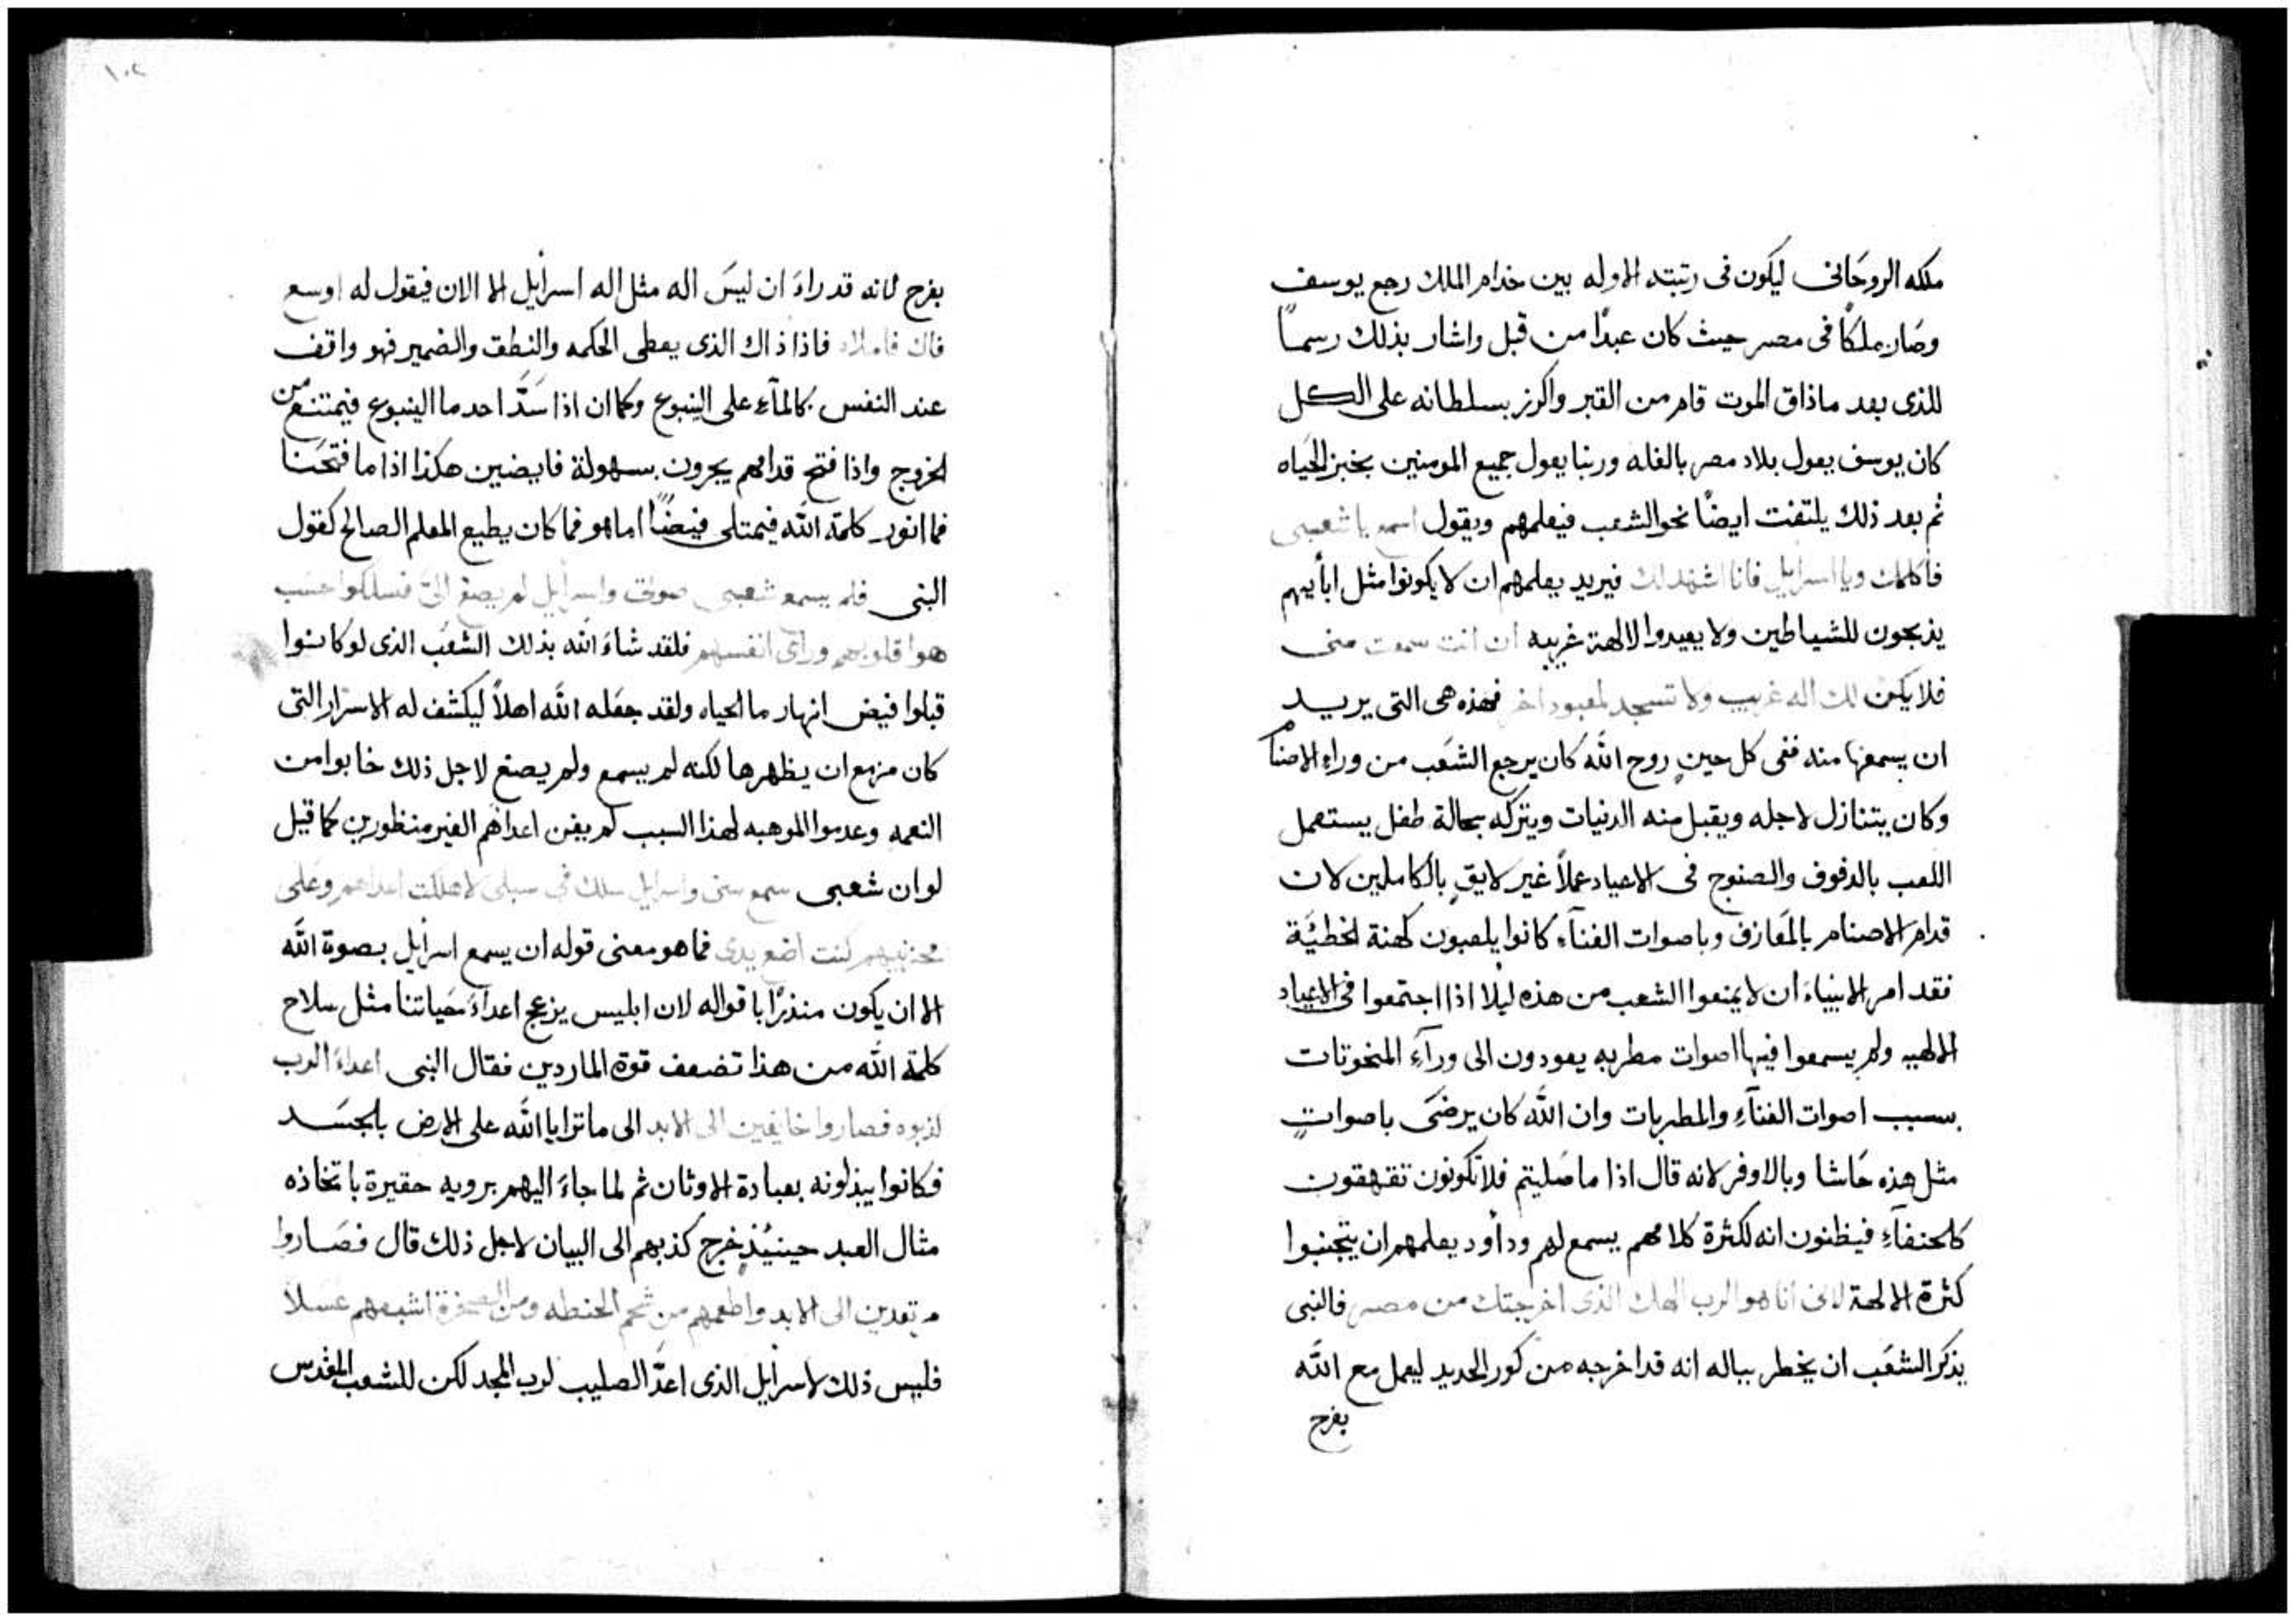 ملكه الروحَانى ليكون فى رتبته الاوله بين خدام الملك رجع يوسف
وصَار ملكاً فى مصر حيث كان عبدًا من قبل واشار بذلك رسمـاً
للذى بعد ماذاق الموت قام من القبر واكرز بسلطانه على الكل
كان يوسف يعول بلاد مصر بالغله وربنا يعول جميع المومنين بخبز الحَياه
ثم بعد ذلك يلتفت ايضًا نحو الشعب فيعلمهم ويقول اسمع يا شعبى
فاكلمك ويا اسرايل فانا اشهد لك فيريد يعلمهم ان لا يكونوا مثل ابأيهم
يذبحون للشياطين ولا يعبدوا لالهة غريبه ان انت سمعت منى
فلا يكن لك اله غريب ولا تسجد لمعبود اخر فهذه هى التى يريـد
ان يسمعها منه ففى كل حينٍ روح الله كان يرجع الشعَب من وراءِ الاصنام
وكان يتنازل لاجله ويقبل منه الدنيات ويتركه بحالة طفل يستعمل
اللعب بالدفوف والصنوج فى الاعياد عملاً غير لايقٍ بالكاملين لان
قدام الاصنام بالمَعازف وباصوات الغنآءِ كانوا يلعبون كهنة الخطيَّة
فقد امر الانبياءَ ان لا يمنعوا الشعب من هذه ليلا اذا اجتمعوا فى الاعياد
الالهيه ولم يسمعوا فيها اصوات مطربه يعودون الى ورآءِ المنحوتات
بسبب اصوات الغنآءِ والمطربات وان الله كان يرضَى باصواتٍ
مثل هذه حَاشا وبالاوفر لانه قال اذا ما صَليتم فلا تكونون تقهقون
كالحنفآءِ فيظنون انه لكثرة كلامهم يسمع لهم وداود يعلمهم ان يتجنبوا
كثرة الالهة لانى انا هو الرب الهك الذى اخرجتك من مصر فالنبى
يذكر الشعَب ان يخطر بباله انه قد اخرجه من كور الحديد ليعمل مع الله
بفرح
١٠٢
بفرح لانه قد راءَ ان ليسَ اله مثل اله اسرايل الا الان فيقول له اوسع
فاك فاملاه فاذا ذاك الذى يعطى الحكمه والنطق والضمير فهو واقف
عند النفس كالمآءِ على الينبوع وكما ان اذا سَدَّ احد ما الينبوع فيمتنع من
الخروج واذا فتح قدامهم يجرون بسهولة فايضين هكذا اذا ما فتحَنا
فما انور كلمة الله فيمتلى فيضًا اما هو فما كان يطيع المعلم الصالح كقول
النبى فلم يسمع شعبى صوتى واسرايل لم يصغ الىَّ فسلكوا حسَب
هوا قلوبهم وراى انفسهم فلقد شاءَ الله بذلك الشعَب الذى لو كانوا
قبلوا فيض انهار ما الحياه ولقد جعَله الله اهلاً ليكشف له الاسرار التى
كان مزمع ان يظهرها لكنه لم يسمع ولم يصغ لاجل ذلك خابوا من
النعمه وعدموا الموهبه لهذا السبب لم يفن اعداهَم الغير منظورين كما قيل
لو ان شعبى سمع منى واسرايل سلك فى سبلى لاهلكت اعداهم وعلى
محزنيهم كنت اضع يدى فما هو معنى قوله ان يسمع اسرايل بصوة الله
الا ان يكون منذرًا باقواله لان ابليس يزعج اعداءَ حَياتنا مثل سلاح
كلمة الله من هذا تضعف قوة الماردين فقال النبى اعداءَ الرب
كذبوه فصاروا خايفين الى الابد الى ما ترايا الله على الارض بالجسَـد
فكانوا يبذلونه بعبادة الاوثان ثم لما جاءَ اليهم برويه حقيرة باتخاذه
مثال العبد حينيُذٍ خرج كذبهم الى البيان لاجل ذلك قال فصَـاروا
مرتعدين الى الابد واطعمهم من شحم الحنطه ومن الصخرة اشبعهم عسلاً
فليس ذلك لاسرايل الذى اعدَّ الصليب لرب المجد لكن للشعب المقدس